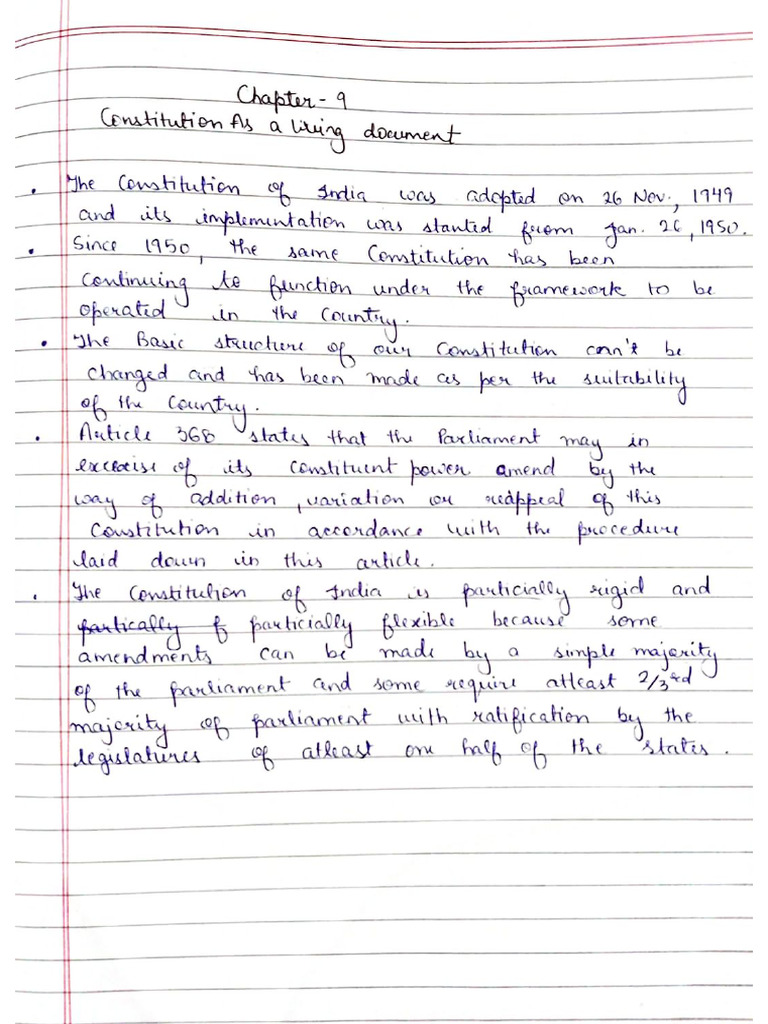 Chapter - 9
Constitution As a living document
• The Constitution of India was adopted on 26 Nov., 1949
and its implementation was started from Jan. 26, 1950.
• Since 1950, the same Constitution has been
continuing to function under the framework to be
operated in the Country.
• The Basic structure of our Constitution can't be
changed and has been made as per the suitability
of the Country.
• Article 368 states that the Parliament may in
excercise of its constituent power amend by the
way of addition, variation or reappeal of this
Constitution in accordance with the procedure
laid down in this article.
• The Constitution of India is particially rigid and
partically f particially flexible because some
amendments can be made by a simple majority
of the parliament and some require atleast 2/3rd
majority of parliament with ratification by the
legislatures of atleast one half of the states.